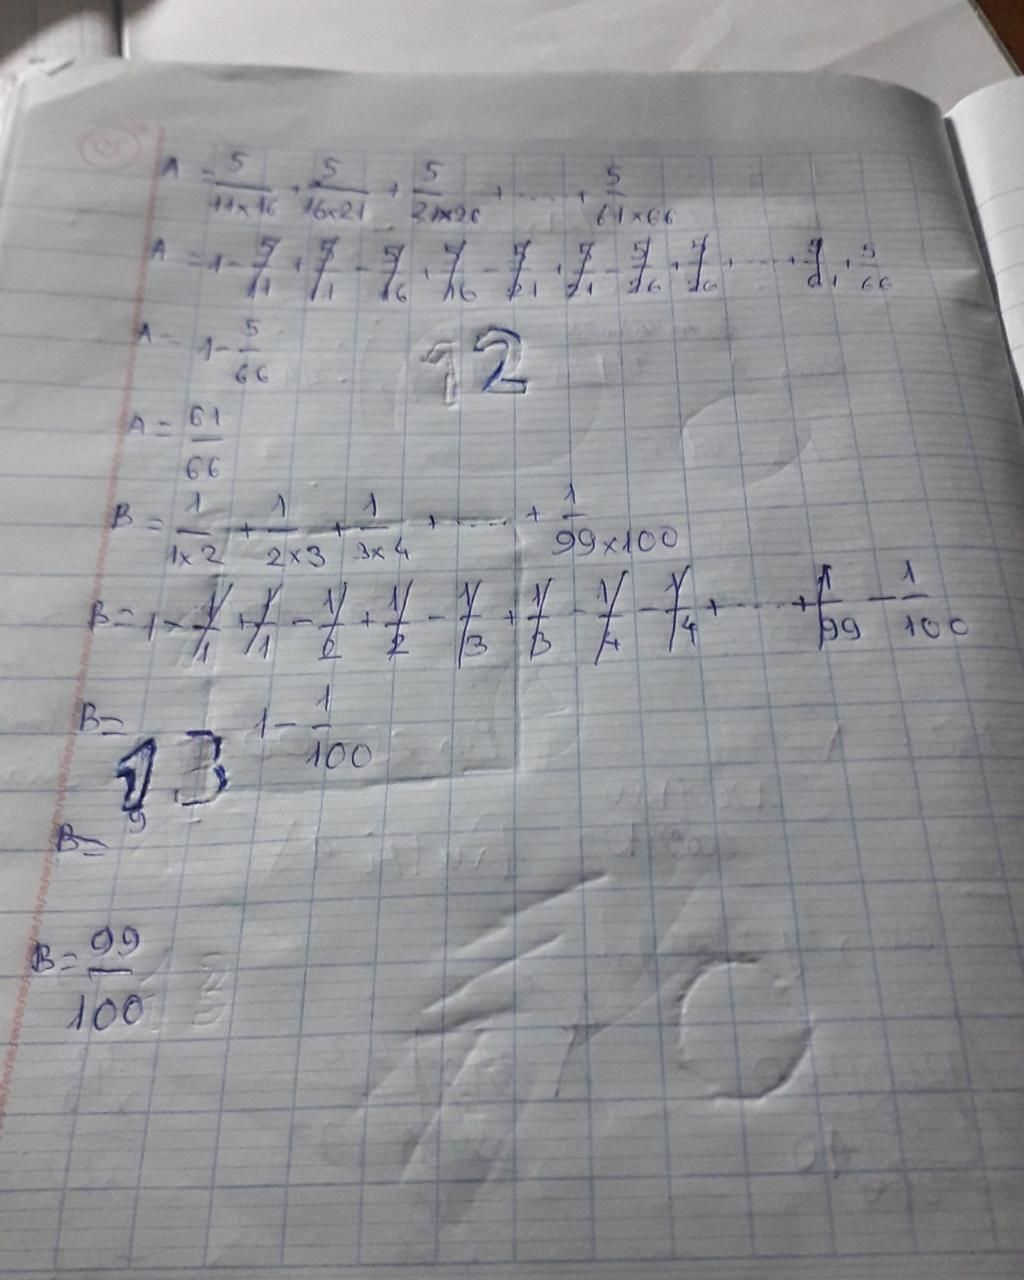 A = 5/11x16 + 5/16x21 + 5/21x26 + ..... + 5/61x66
A = 1 - 5/11 + 5/11 - 5/16 + 5/16 - 5/21 + 5/21 - 5/26 + 5/26 + ..... + 5/61 + 5/66
A = 1 - 5/66
12
A = 61/66
B = 1/1x2 + 1/2x3 + 1/3x4 + ..... + 1/99x100
B = 1 - 1/1 + 1/1 - 1/2 + 1/2 - 1/3 + 1/3 - 1/4 - 1/4 + ..... + 1/99 - 1/100
B = 1 - 1/100
13
B =
B = 99/100